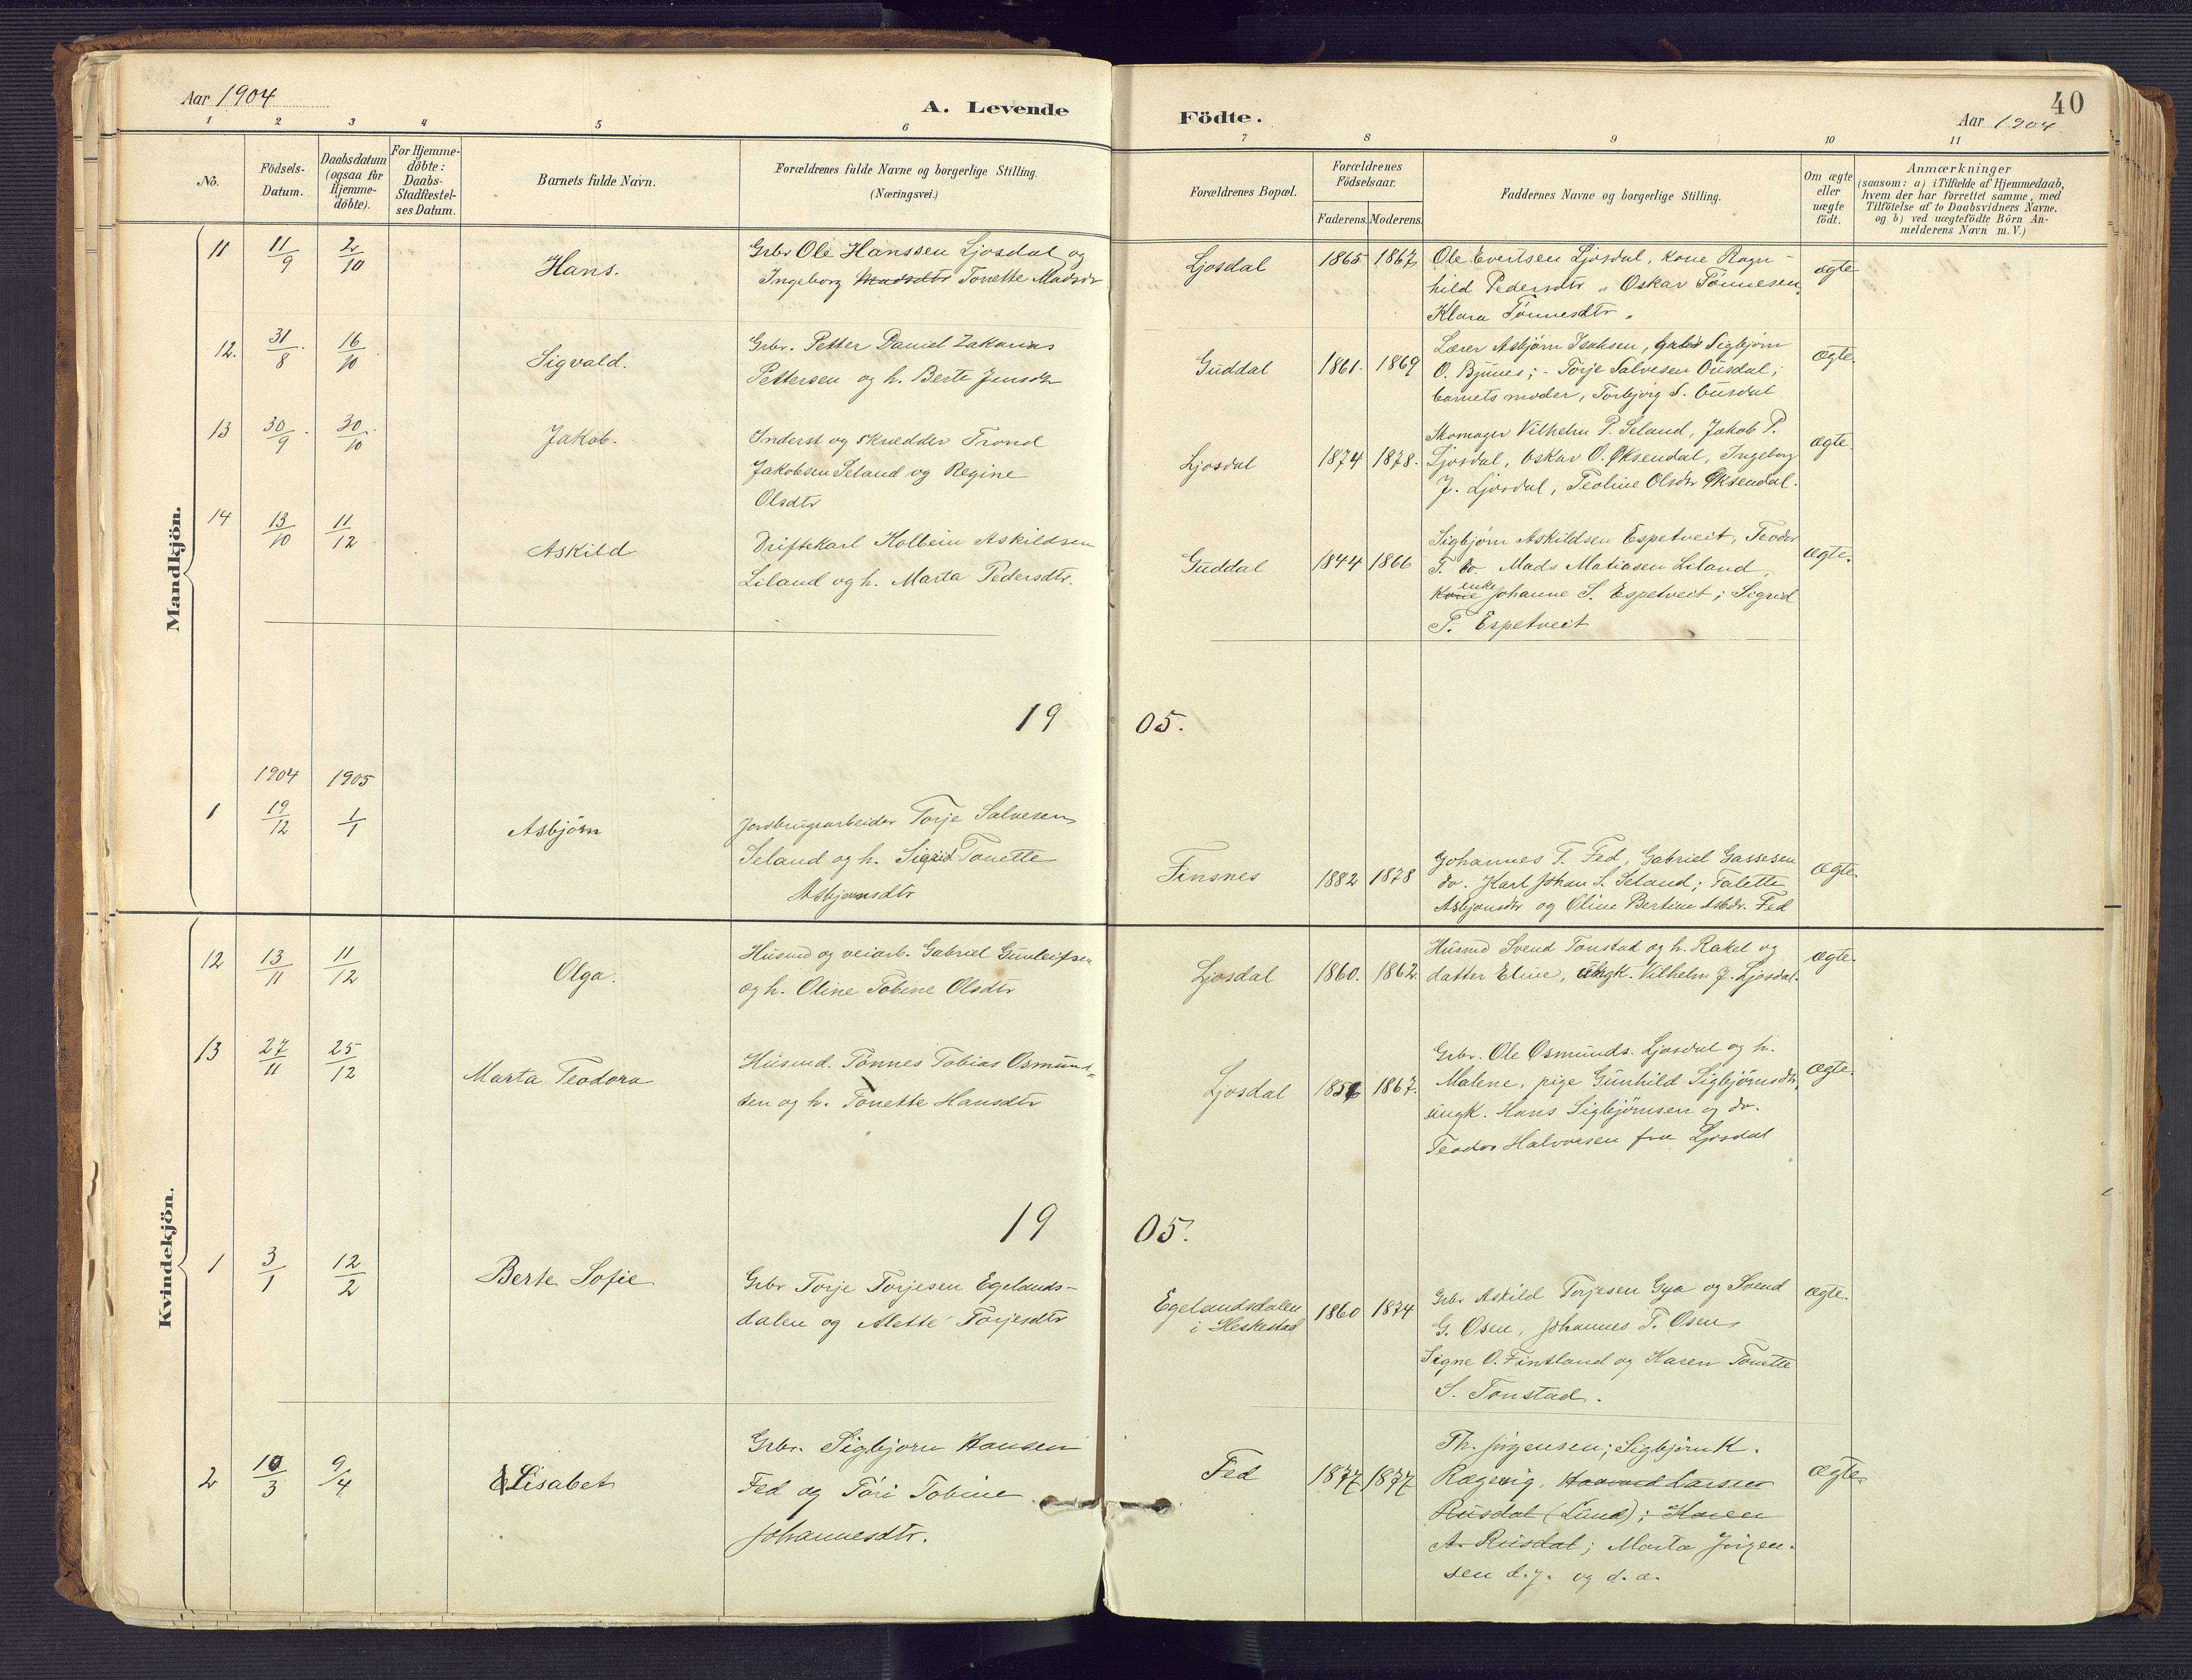 Aar 1904
A. Levende Födte.
40
Aar 1904
1 2 3 4 5 6 7 8 9 10 11
No.
Födsels-Datum.
Daabsdatum (ogsaa for Hjemmedöbte).
For Hjemmedöbte: Daabs-Stadfæstelses Datum.
Barnets fulde Navn.
Forældrenes fulde Navne og borgerlige Stilling.
(Næringsvei.)
Forældrenes Bopæl.
Forældrenes Födselsaar.
Faderens. Moderens.
Faddernes Navne og borgerlige Stilling.
Om ægte eller uægte födt.
Anmærkninger
(saasom: a) i Tilfælde af Hjemmedaab, hvem der har forrettet samme, med Tilföielse af to Daabsvidners Navne, og b) ved uægtefödte Börn Anmelderens Navn m. V.)
Mandkjön.
11 11/9 2/10 Hans.
Grbr Ole Hanssen Ljosdal og
Ingeborg Madsdtr Tonette Madsdr
Ljosdal 1865 1867
Ole Evertsen Ljosdal, kone Ragn-
hild Pedersdtr „ Oskar Tönnesen,
Klara Tönnesdtr „
ægte
12. 31/8 16/10 Sigvald.
Grbr. Petter Daniel Zakarias
Pettersen og h. Berte Jensdtr
Guddal 1861. 1869
Lærer Asbjörn Isaksen, Sigbjörn
O. Bjunes; - Torje Salvesen Ousdal;
barnets moder, Torbjörg S. Ousdal
ægte.
13 30/9 30/10 Jakob.
Inderst og skrædder Trond
Jakobsen Seland og Regine
Olsdtr
Ljosdal 1874 1878.
Skomager Vilhelm P. Seland, Jakob P.
Ljosdal, Oskar O. Øksendal, Ingeborg
J. Ljosdal, Teoline Olsdr Øksendal.
ægte.
14 13/10 11/12 Askild
Driftekarl Kolbein Askildsen
Liland og h. Marta Pedersdtr.
Guddal 1844 1866
Sigbjörn Askildsen Espetveit, Teodor
T. do. Mads Matiasen Liland,
Kone enke Johanne S. Espetveit; Sigrid
P. Espetveit
ægte.
1905.
1904 1905
1 19/12 1/1 Asbjörn
Jordbrugsarbeider Torje Salvesen
Seland og h. Sigrid Tonette
Asbjørnsdtr
Finsnes 1882 1878
Johannes T. Fed, Gabriel Gassesen
do. Karl Johan S. Seland; Talette
Asbjønsdtr og Oline Bertine Asbdr. Fed
ægte.
Kvindekjön.
12 13/11 11/12 Olga.
Husmd og veiarb. Gabriel Gunleifsen
og h. Oline Tobine Olsdtr
Ljosdal 1860. 1862
Husmd Svend Tonstad og h. Rakel og
datter Eline, ungk. Vilhelm J. Ljosdal.
ægte.
13 27/11 25/12 Marta Teodora
Husmd. Tönnes Tobias Osmund-
sen og h. Tonette Hansdtr
Ljosdal 1856 1867.
Grbr. Ole Osmunds. Ljosdal og h.
Malene, pige Gunhild Sigbjörnsdtr,
ungk. Hans Sigbjörnsen og do.
Teodor Halvorsen fra Ljosdal
ægte.
1905.
1 3/1 12/2 Berte Sofie
Grbr Torje Torjesen Egelands-
dalen og Alette Torjesdtr
Egelandsdalen
i Heskestad
1860 1874
Grbr Askild Torjesen Gya og Svend
G. Osen, Johannes T. Osen,
Signe O. Fintland og Karen Tonette
S. Tonstad.
ægte.
2 10/3 9/4 Elisabet
Grbr. Sigbjorn Hansen
Fed og Tori Tobine
Johannesdtr.
Fed 1877 1877
Th. Jörgensen; Sigbjörn K.
Rægevig, Haavard Larsen
Rusdal (Lund); Karen
A. Rusdal; Marta Jörgen-
sen d.y. og d.æ.
ægte.